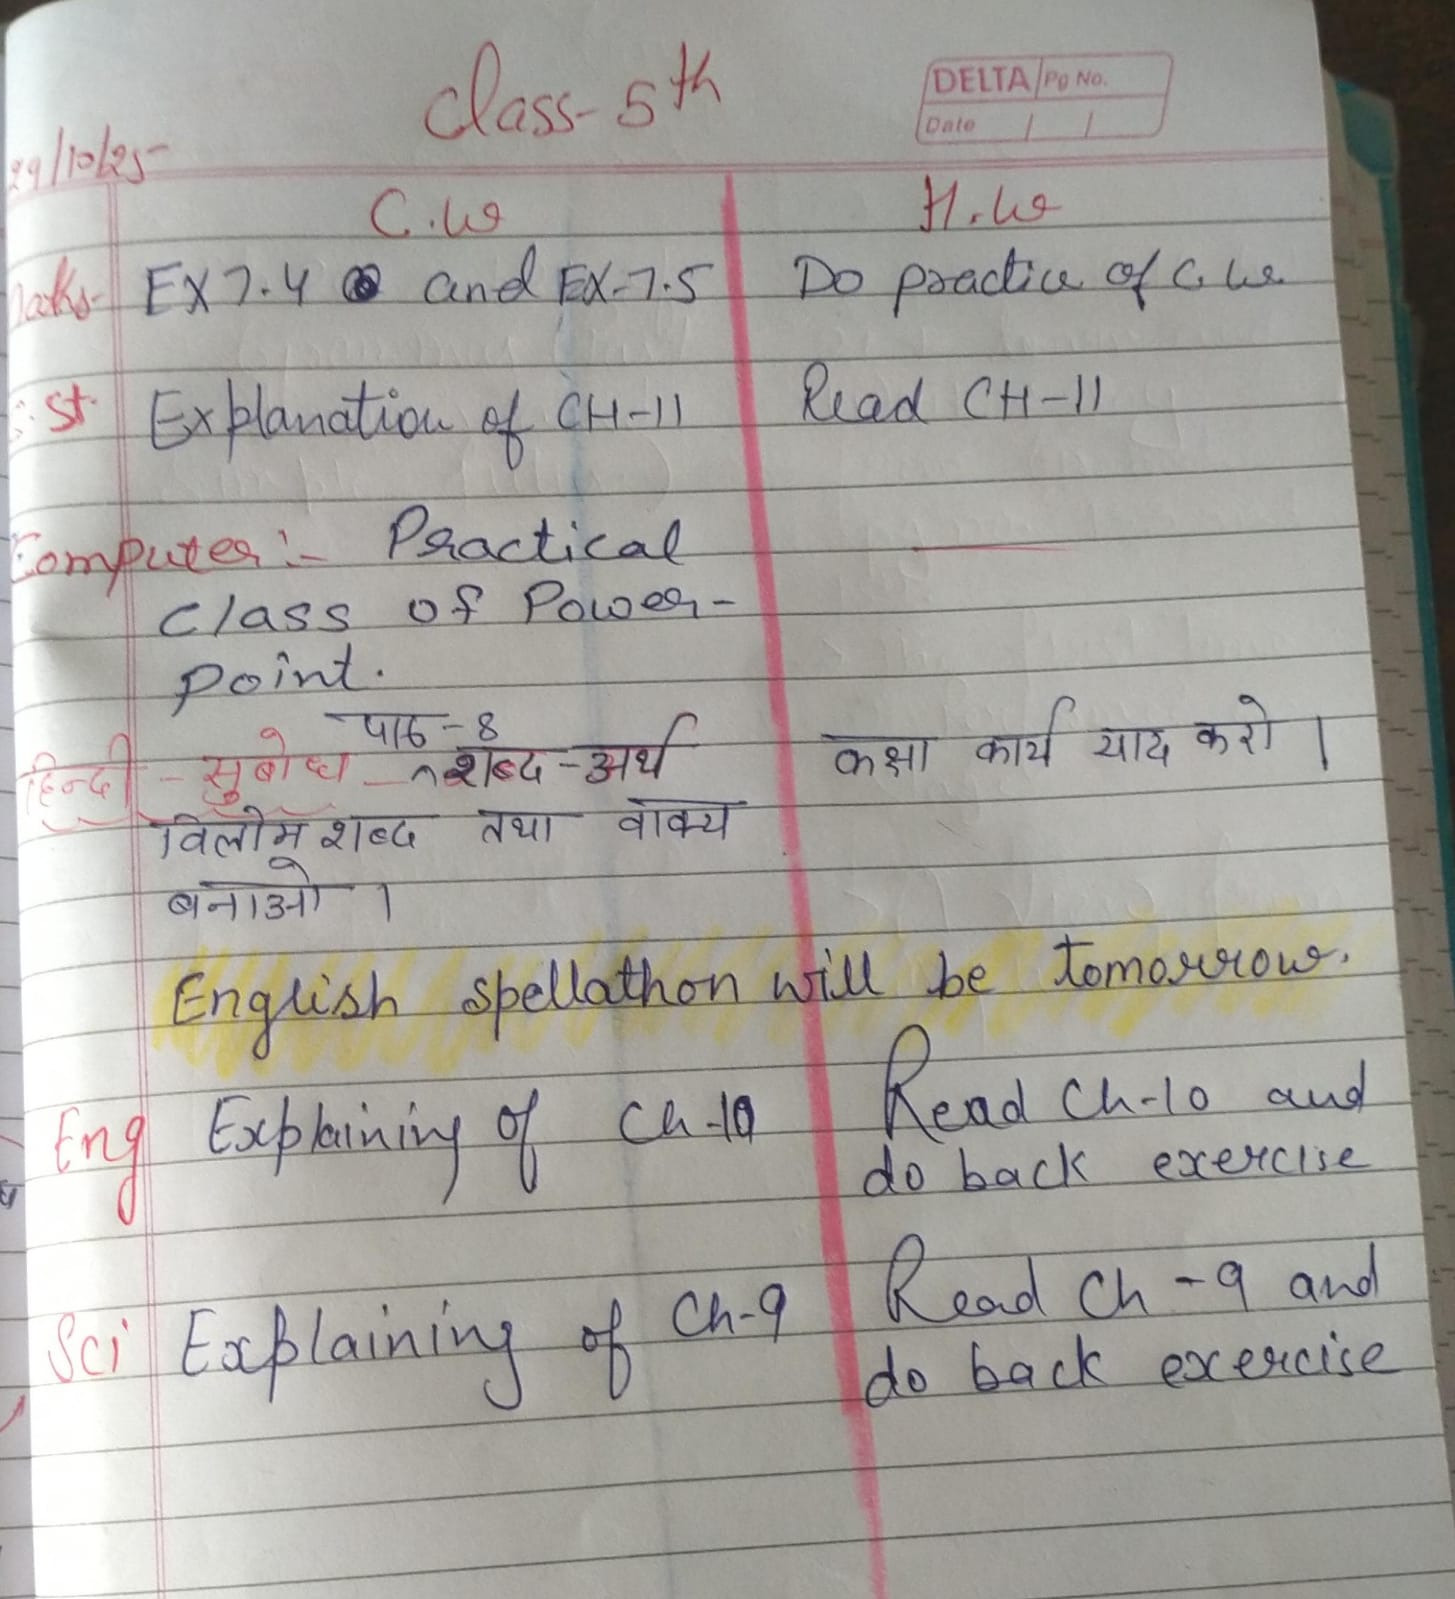 class-5th
DELTA Pg No.
Date / /
29/10/25
C.W H.W
Maths- EX 7.4 and EX-7.5 Do practice of C.W
S.St Explanation of CH-11 Read CH-11
Computer:- Practical
Class of Power-
point.
पाठ-8
हिन्दी - सुबोध - शब्द-अर्थ कक्षा कार्य याद करो ।
विलोम शब्द तथा वाक्य
बनाओ ।
English spellathon will be tomorrow.
Eng Explaining of Ch-10 Read Ch-10 and
do back exercise
Sci Explaining of Ch-9 Read Ch-9 and
do back exercise